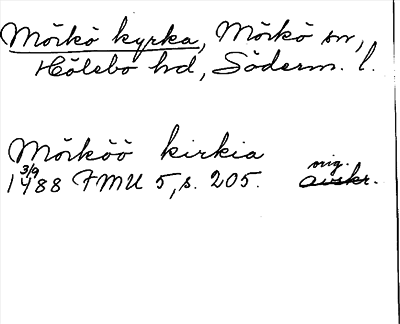 Mörkö kyrka, Mörkö sn,
Hölebo hd, Söderm. l.
Mörköö kirkia
3/9 orig.
1488 FMU 5, s. 205. avskr.